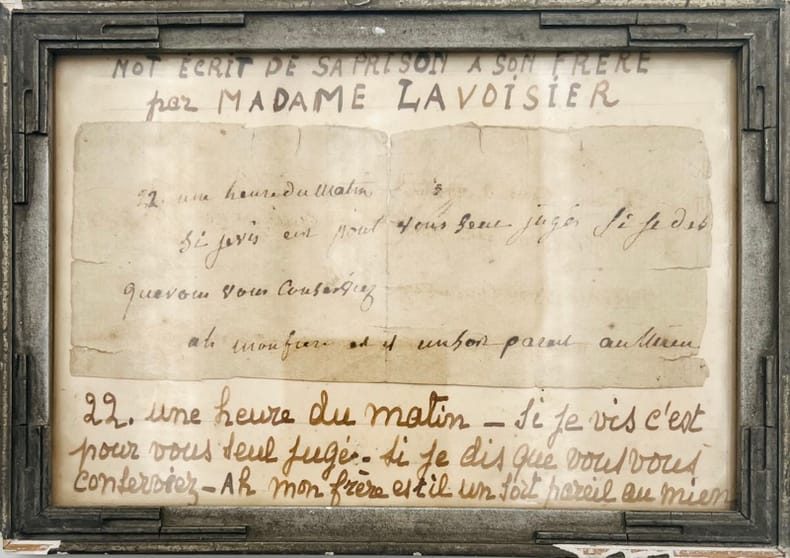 MOT ÉCRIT DE SA PRISON A SON FRERE
par MADAME LAVOISIER
22. une heure du Matin
Si je vis est pour vous seul jugés Si je dis
que vous vous conserviez
ah mon frere est il un sort pareil au Mien
22. une heure du matin – Si je vis c'est
pour vous seul jugé – Si je dis que vous vous
conserviez – Ah mon frère est il un sort pareil au mien